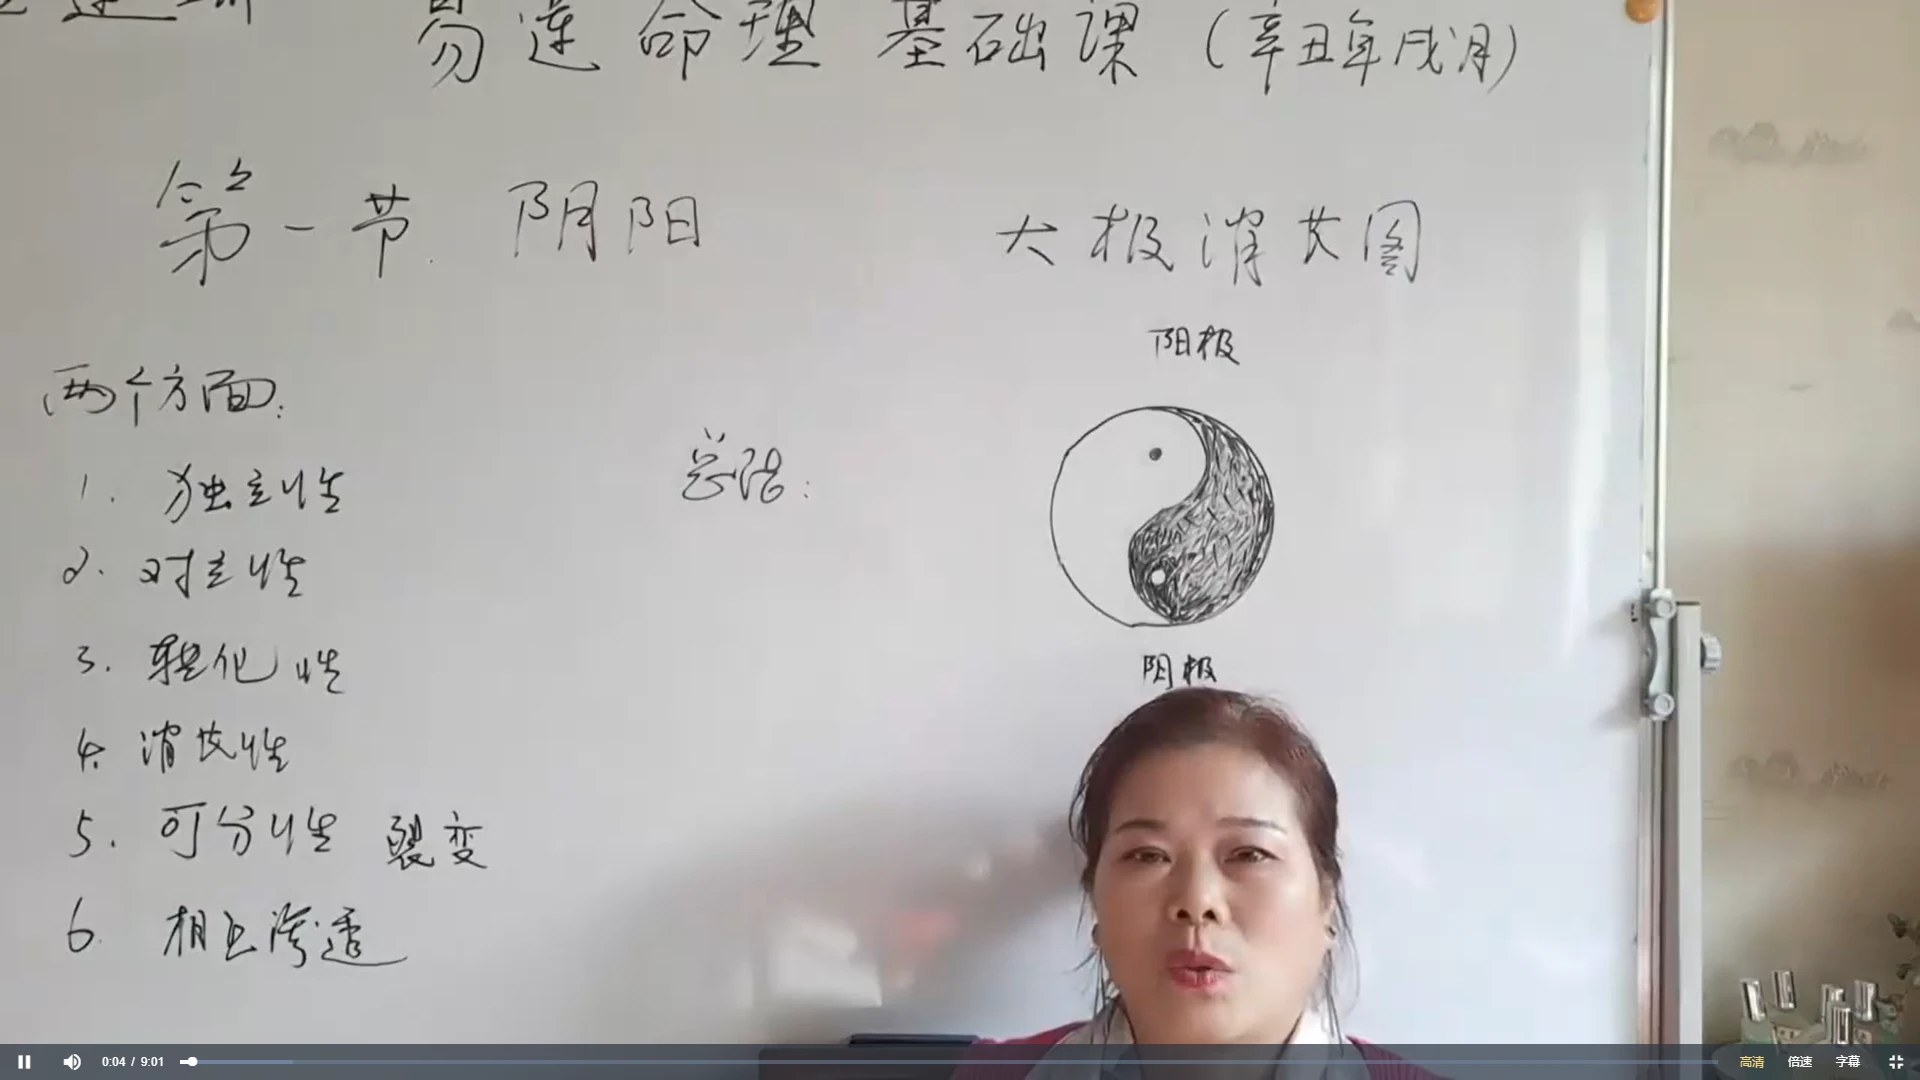 命理基础课（辛丑年戌月）
第一节 阴阳
太极消长图
阳极
两个方面：
总结：
1. 独立性
2. 对立性
3. 转化性
阴极
4. 消长性
5. 可分性 裂变
6. 相互渗透
0:04 / 9:01
高清 倍速 字幕